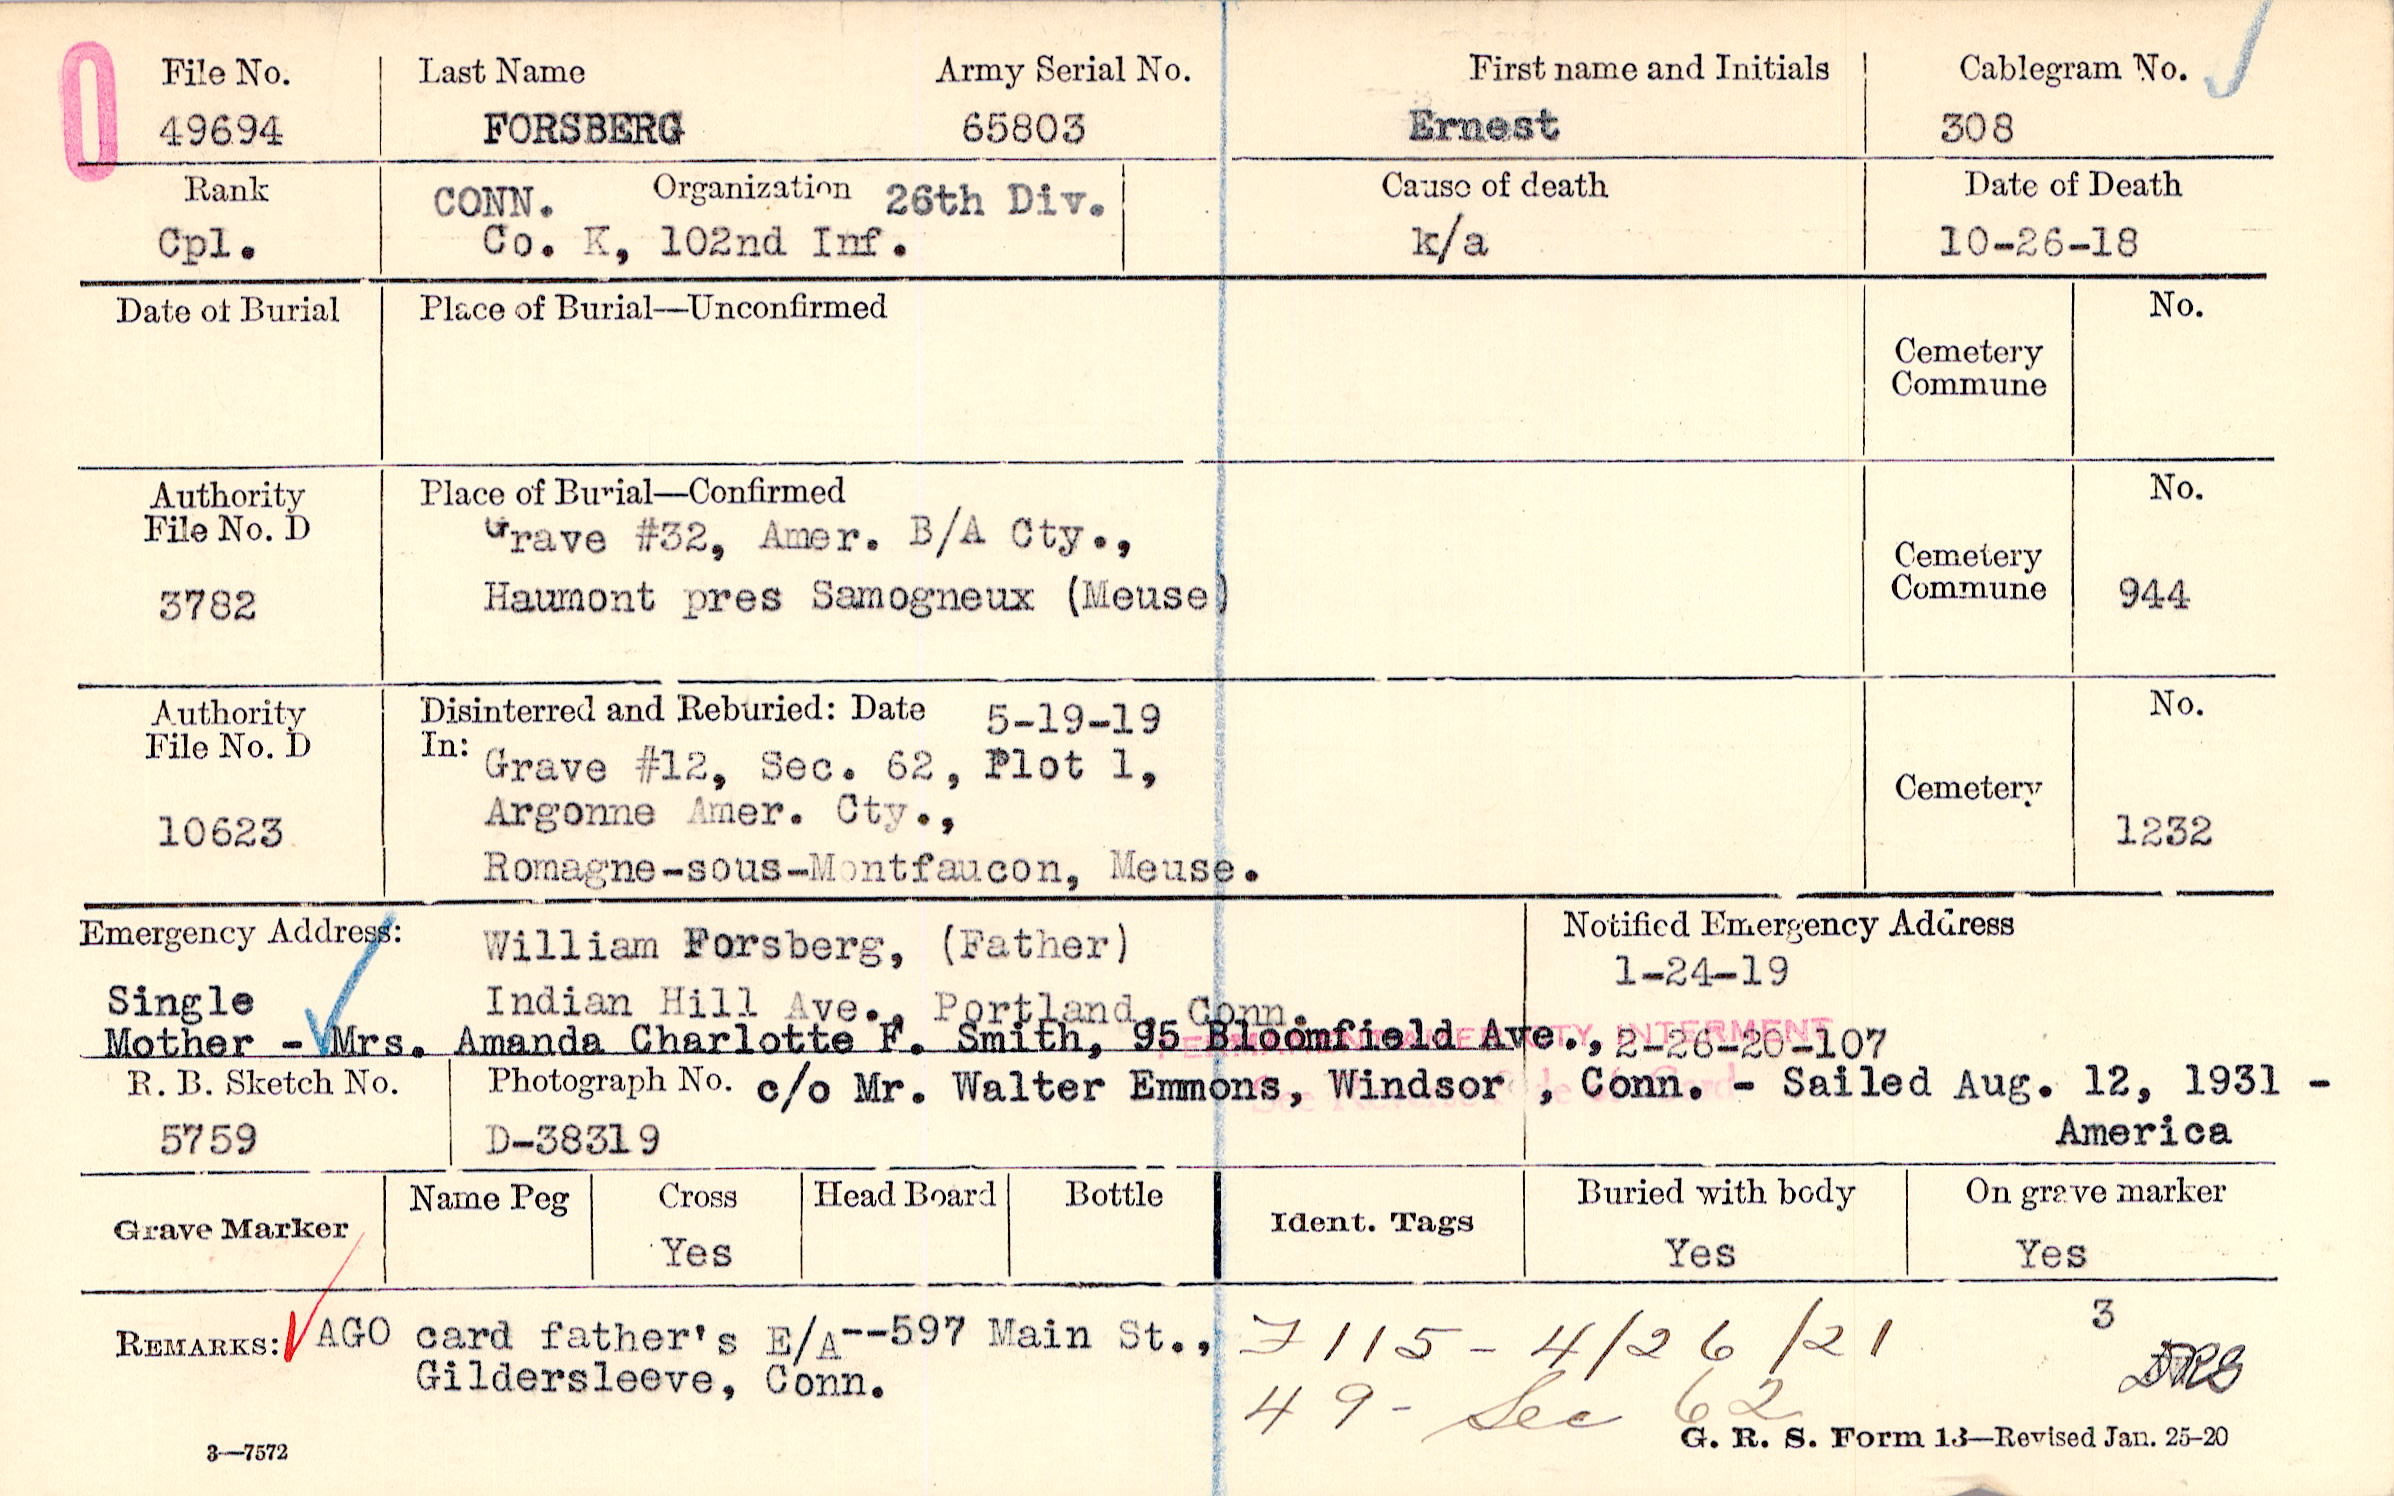 0
File No. Last Name Army Serial No. First name and Initials Cablegram No.
49694 FORSBERG 65803 Ernest 308
Rank CONN. Organization 26th Div. Cause of death Date of Death
Cpl. Co. K, 102nd Inf. k/a 10-26-18
Date of Burial Place of Burial—Unconfirmed No.
Cemetery
Commune
Authority Place of Burial—Confirmed No.
File No. D Grave #32, Amer. B/A Cty., Cemetery
3782 Haumont pres Samogneux (Meuse) Commune 944
Authority Disinterred and Reburied: Date 5-19-19 No.
File No. D In: Grave #12, Sec. 62, Plot 1, Cemetery
10623 Argonne Amer. Cty., 1232
Romagne-sous-Montfaucon, Meuse.
Emergency Address: William Forsberg, (Father) Notified Emergency Address
1-24-19
Single Indian Hill Ave., Portland, Conn.
INTERMENT
Mother - Mrs. Amanda Charlotte F. Smith, 95 Bloomfield Ave., 2-26-20-107
R. B. Sketch No. Photograph No. c/o Mr. Walter Emmons, Windsor, Conn. - Sailed Aug. 12, 1931 -
5759 D-38319 America
Grave Marker Name Peg Cross Head Board Bottle Ident. Tags Buried with body On grave marker
Yes Yes Yes
3
REMARKS: AGO card father's E/A--597 Main St., 115 - 4/26/21
Gildersleeve, Conn. 49 - Sec 62
3—7572 G. R. S. Form 13—Revised Jan. 25-20